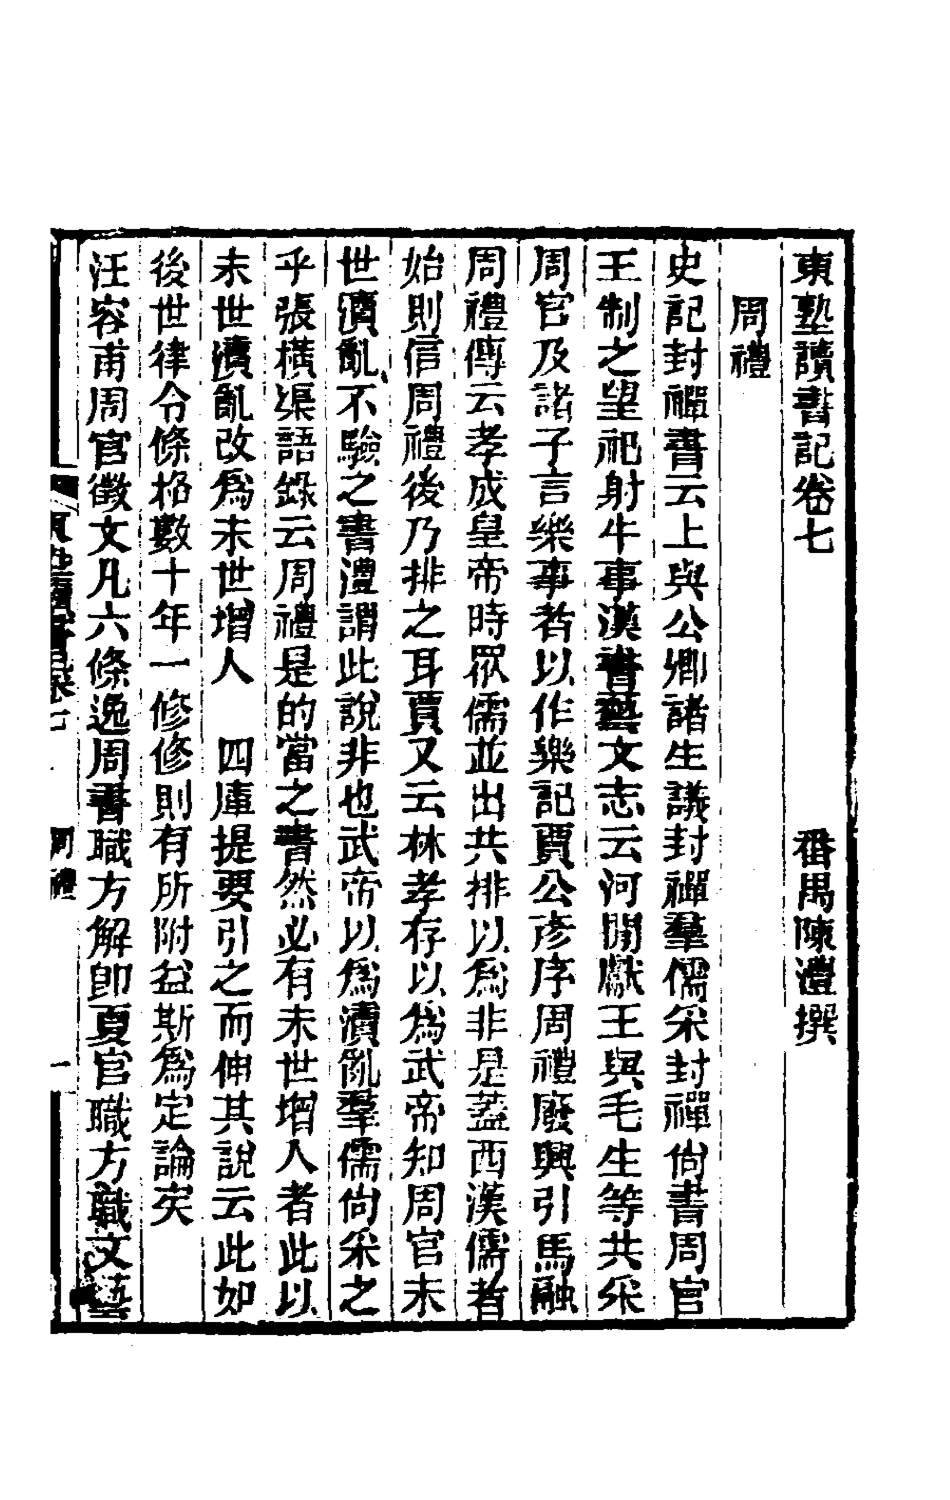 東塾讀書記卷七　番禺陳澧撰
周禮
史記封禪書云上與公卿諸生議封禪羣儒采封禪尙書周官
王制之望祀射牛事漢書藝文志云河間獻王與毛生等共采
周官及諸子言樂事者以作樂記賈公彥序周禮廢興引馬融
周禮傳云孝成皇帝時眾儒並出共排以爲非是蓋西漢儒者
始則信周禮後乃排之耳賈又云林孝存以爲武帝知周官末
世瀆亂不驗之書澧謂此說非也武帝以爲瀆亂羣儒尙采之
乎張橫渠語錄云周禮是的當之書然必有末世增入者此以
末世瀆亂改爲末世增入　四庫提要引之而伸其說云此如
後世律令條格數十年一修修則有所附益斯爲定論矣
汪容甫周官徵文凡六條逸周書職方解卽夏官職方職文藝
東塾讀書記卷七　周禮　一